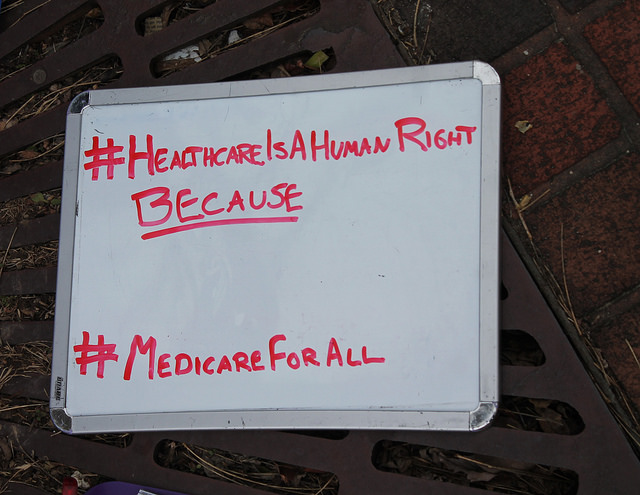 #HEALTHCAREISAHUMANRIGHT
BECAUSE
#MEDICAREFORALL